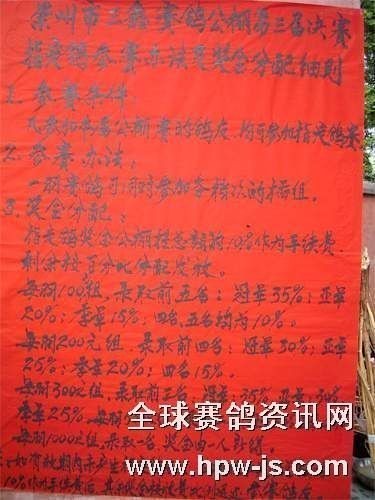 崇州市三鑫赛鸽公棚第三届决赛
指定鸽参赛办法及奖金分配细则
1. 参赛条件:
凡参加本届公棚赛的鸽友,均可参加指定鸽赛
2. 参赛办法:
一羽赛鸽可同时参加各档次的插组。
3. 奖金分配:
指定鸽奖金公棚提总额的10%作为手续费
剩余按百分比分配发放。
每羽100组,录取前五名:冠军35%;亚军
20%;季军15%,四名,五名均为10%。
每羽200元组,录取前四名:冠军30%;亚军
25%;季军20%;四名15%。
每羽300元组,录取前三名,冠军35%,亚军30%
季军25%。每羽
每羽1000元组,录取一名,奖金由一人
如有效期内未产生
10%作为手续费后,其
全球赛鸽资讯网
www.hpw-js.com